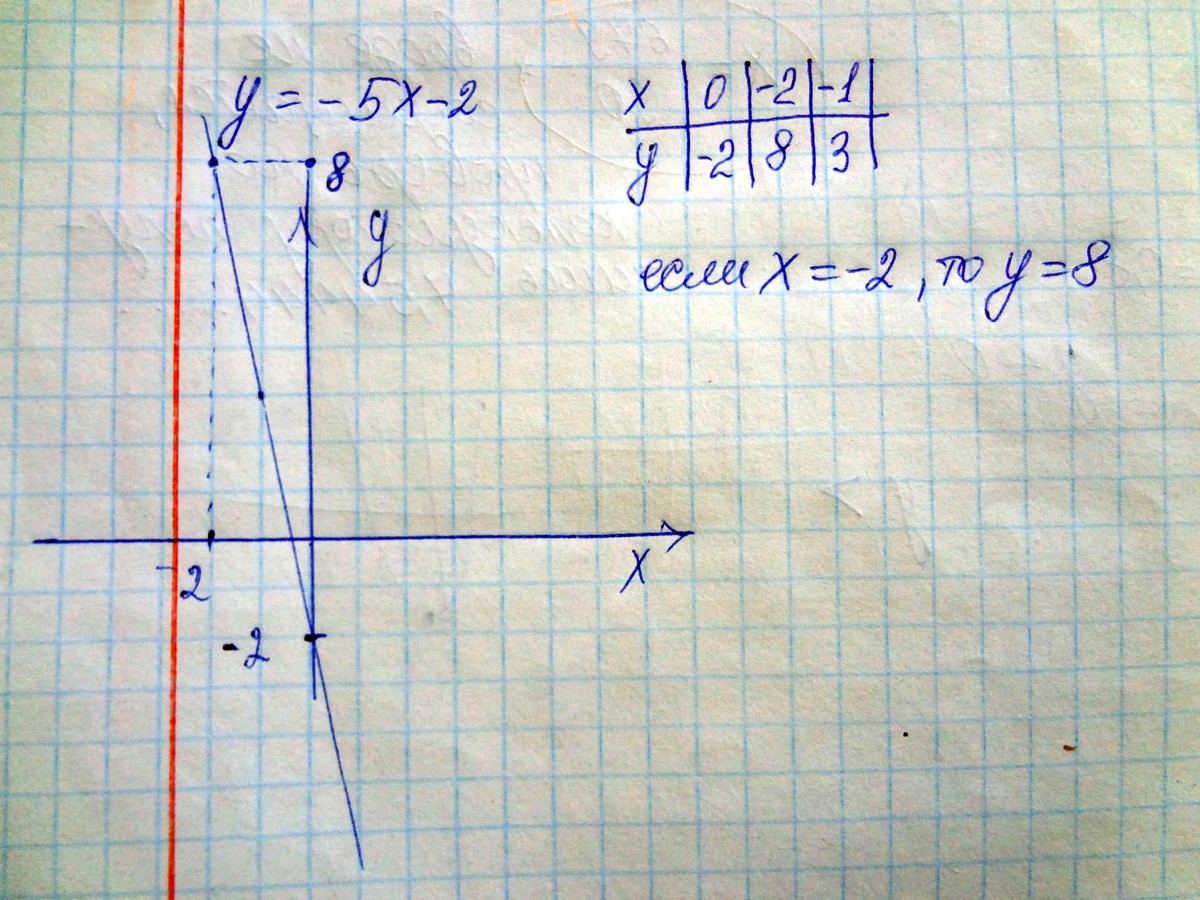 y = -5x-2
x | 0 | -2 | -1 |
y | -2 | 8 | 3 |
8
y
если x = -2, то y = 8
x
-2
-2